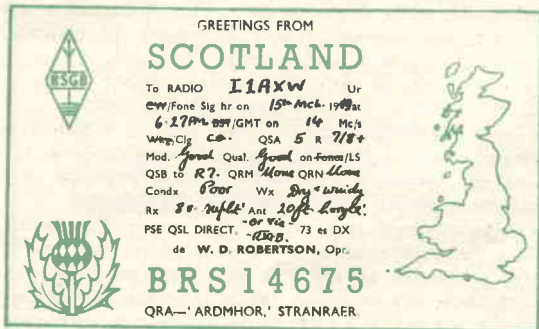 GREETINGS FROM
RSGB
SCOTLAND
To RADIO I1AXW Ur
CW/Fone Sig hr on 15th Mch. 1949 at
6.27PM BST/GMT on 14 Mc/s
Wkg/Clg CQ. QSA 5 R 7/8+
Mod. Good Qual. Good on Fones/LS
QSB to R7. QRM None QRN None
Condx Poor Wx Dry & windy
Rx 8v Ant 20ft.
PSE QSL DIRECT -or via- 73 es DX
RSGB.
de W. D. ROBERTSON, Opr.
BRS 14675
QRA—'ARDMHOR,' STRANRAER